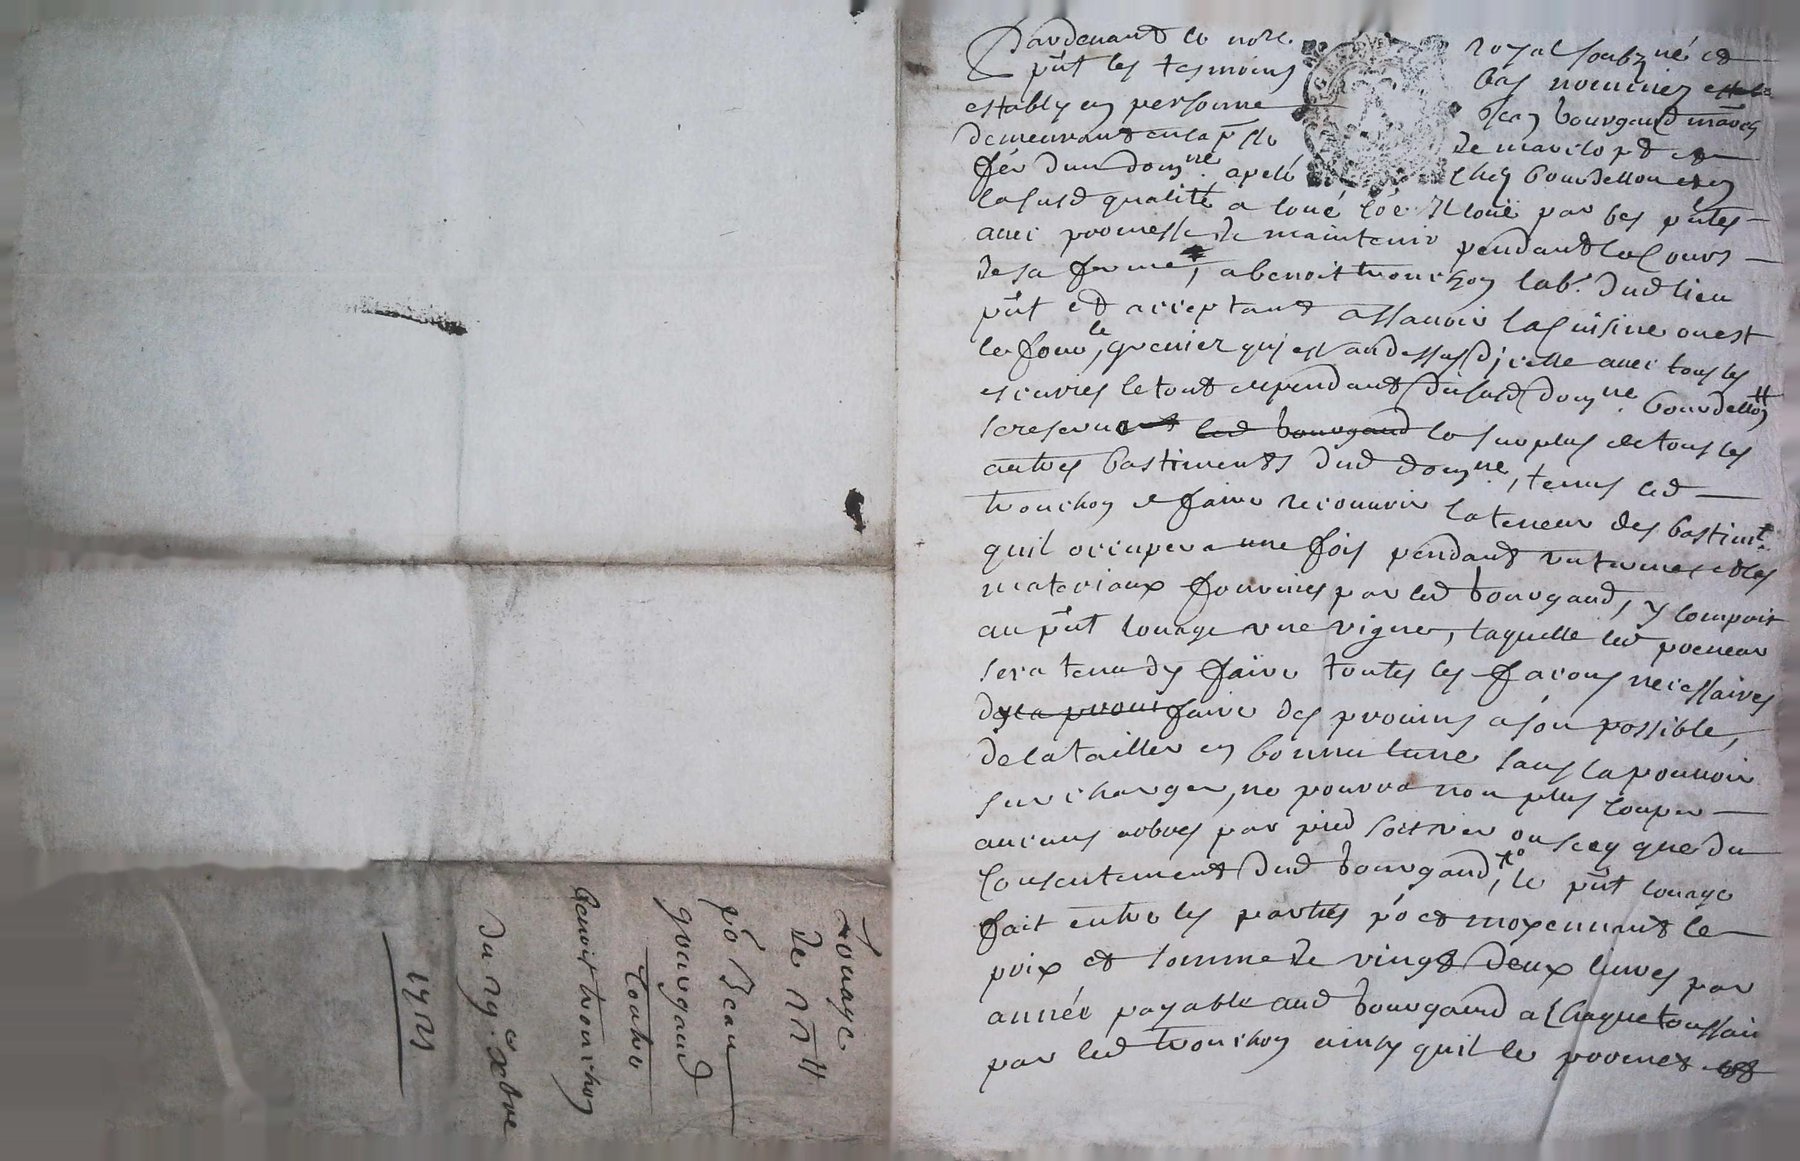 Pardevant le no.re royal soubz.né et
p̄nt les tesmoins bas nommez
estably en personne Jean bourgaud march
demeurant en la p̄sse de marcilo et
fér d'un dom.ne apellé chez bourdellon
la susd qualité a loué loé et loüe par ces p̄ntes
avec promesse de maintenir pendant le cours
de sa ferme, a benoit trouchoy lab.r dud lieu
p̄nt et acceptant assauoir la cuisine ou est
le four, le grenier qui est au dessus d'icelle auec tous les
escuries le tout dependant du susd dom.ne bourdellon
se reseruant led bourgaud le surplus de tous les
autres bastiments dud dom.ne, tenus led
trouchoy de faire recouurir la teneur des bastim.ts
quil occupera une fois pendant
materiaux fournies par led bourgaud, y compris
au p̄nt louage vne vigne, laquelle led preneur
sera tenu dy faire toutes les facons necessaires
faire des prouins a son possible,
de la tailler en bonne lune sans la pouuoir
surcharger, ne pourra non plus couper
aucuns arbres par pied soit ver ou secq que du
consentement dud bourgaud, le p̄nt louage
fait entre les parties po et moyennant le
prix et somme de vingt deux liures par
année payable aud bourgaud a chaque toussain
par led trouchoy ainsy quil le promet
Louage
de 22 ₶
po Jean
gourgaud
Contre
Benoit trouchoy
du 29.e 8bre
1722